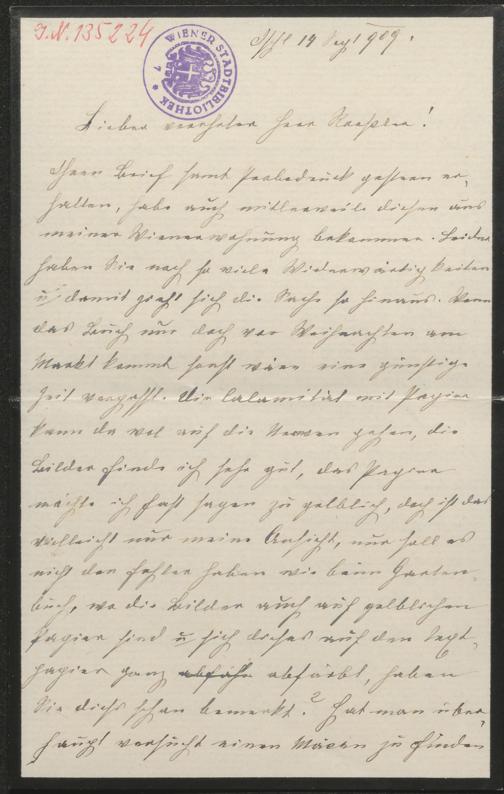 J.N. 135224
WIENER STADTBIBLIOTHEK
* 7 *
Ischl 14 Sept 909.
Lieber verehrter Herr Roessler!
Ihren Brief samt Probedruck gestern er-
halten, habe auch mittlerweile diesen aus
meiner Wienerwohnung bekommen. Leider
haben Sie noch so viele Widerwärtigkeiten
u damit zieht sich die Sache so hinaus. Wenn
das Buch nur doch vor Weihnachten am
Markt kommt sonst wäre eine günstige
Zeit verpasst. Die Calamität mit Papier
kann da wol auf die Nerven gehen, die
Bilder finde ich sehr gut, das Papier
möchte ich fast sagen zu gelblich, doch ist das
vielleicht nur meine Ansicht, nur soll es
nicht den Fehler haben wie beim Garten-
buch, wo die Bilder auch auf gelblichen
Papier sind u sich dieses auf den Text-
papier ganz abfärbt, haben
Sie dies schon bemerkt? Hat man über-
haupt versucht einen Mäcen zu finden